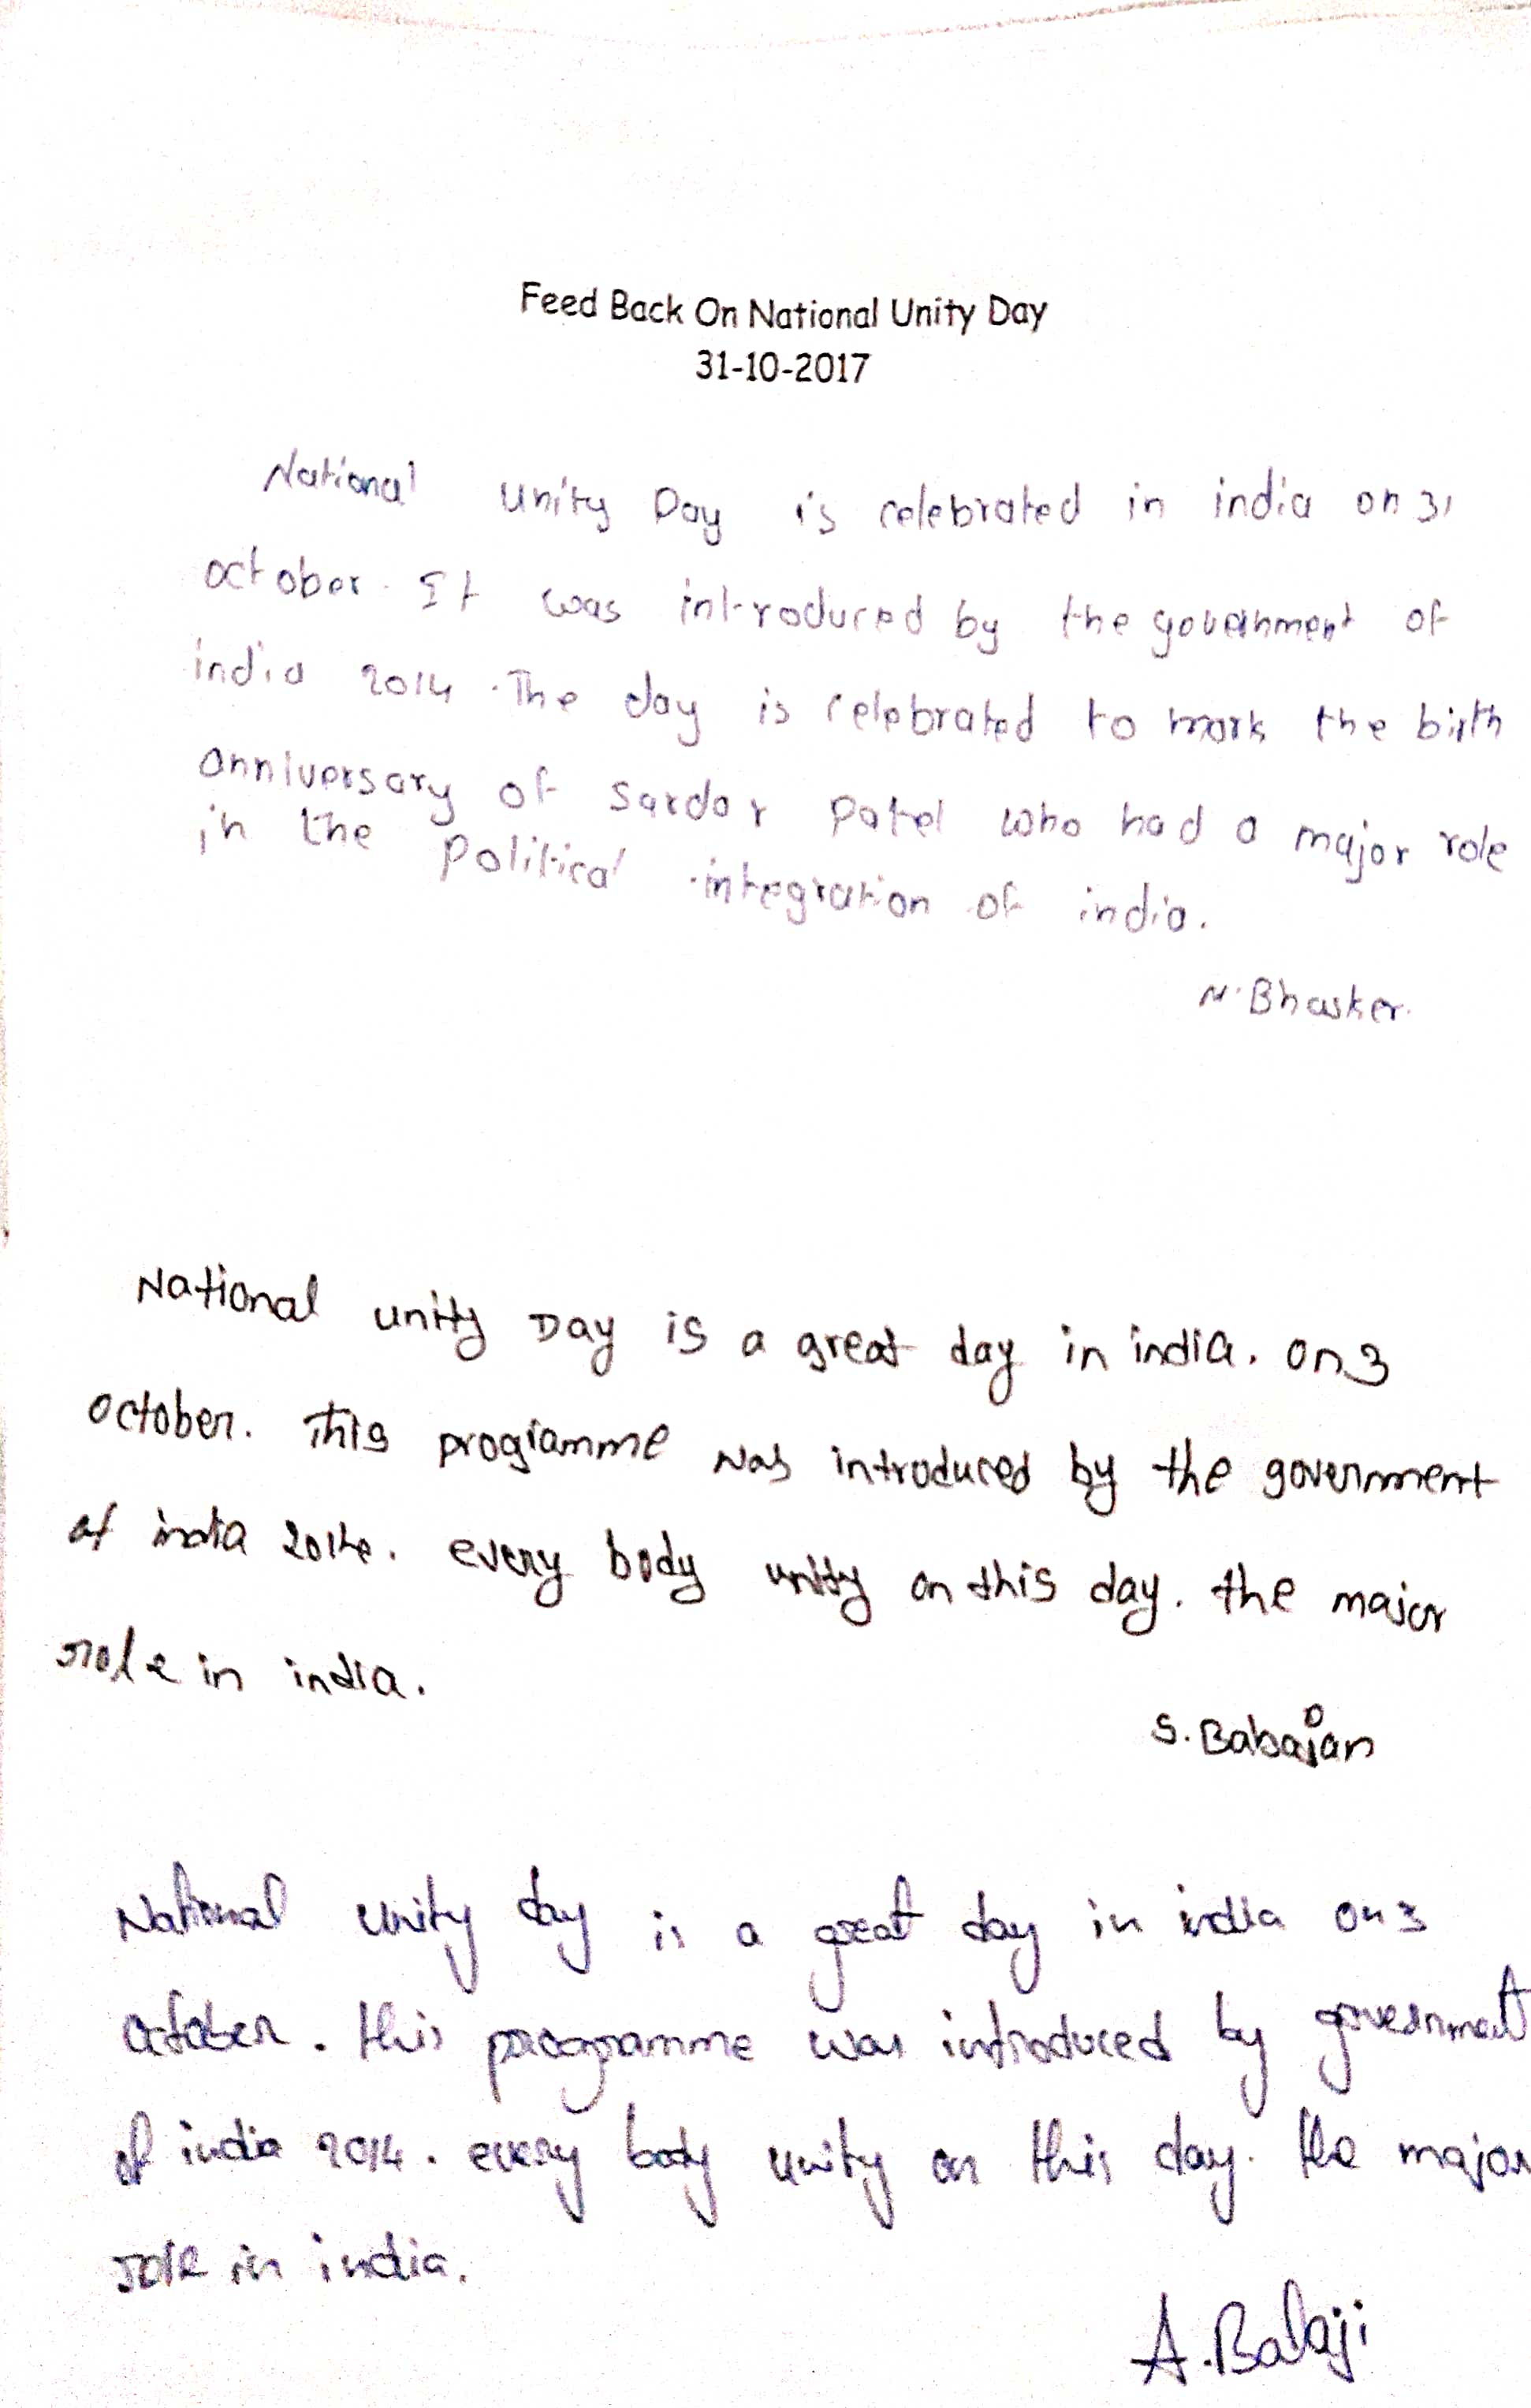 Feed Back On National Unity Day
31-10-2017
National unity Day is celebrated in india on 31
october. It was introduced by the government of
india 2014. The day is celebrated to mark the birth
anniversary of sardar patel who had a major role
in the political integration of india.
N. Bhasker.
National unity Day is a great day in india. on 3
october. This programme was introduced by the government
of india 2014. every body unity on this day. the major
role in india.
S. Babajan
National unity day is a great day in india on 3
october. this programme was introduced by government
of india 2014. every body unity on this day. the major
role in india.
A. Balaji